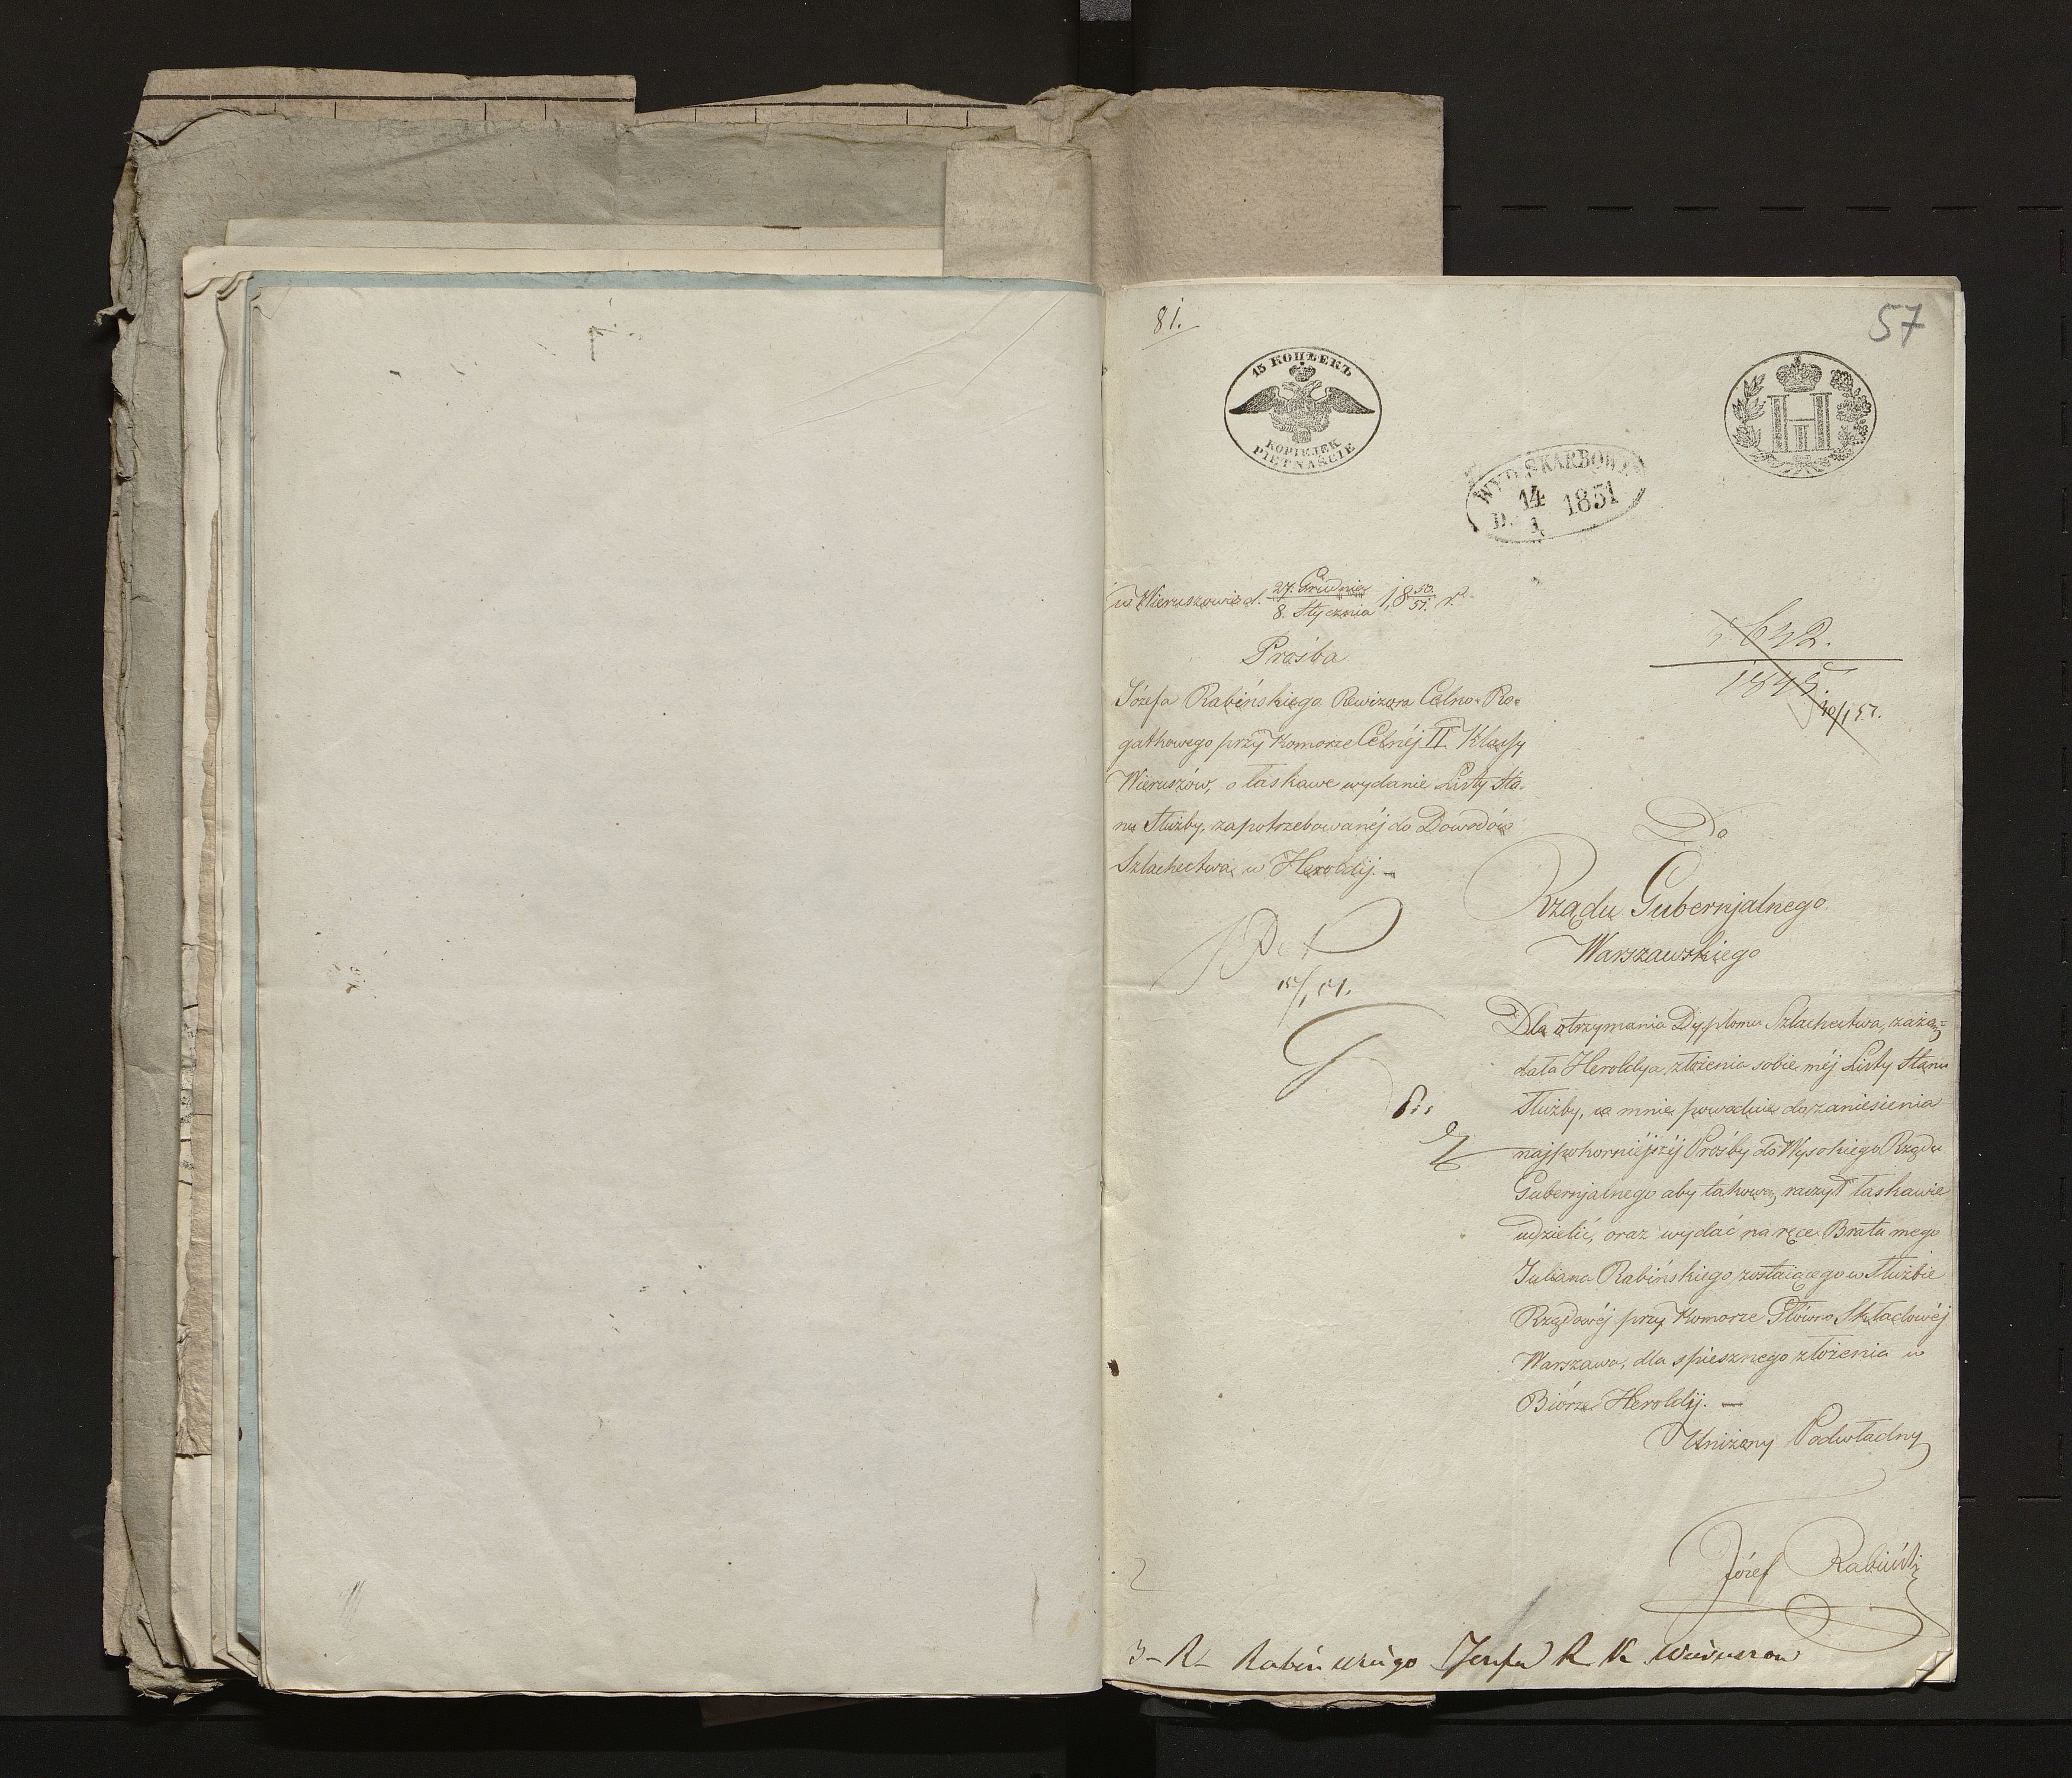 81.
57
15 КОПѢЕКЪ
KOPIEJEK
PIĘTNAŚCIE
WYD. SKARBOWY
D. 14/1 1851
w Wieruszowie d. 27. Grudnia / 8. Stycznia 18 50/51. r.
Prośba
Józefa Rabińskiego Rewizora Celno-Ro=
gatkowego przy Komorze Celnéj II Klassy
Wieruszów, o łaskawe wydanie Listy Sta-
nu Służby, zapotrzebowanéj do Dowodów
Szlachectwa w Heroldij. —
Do
Rządu Gubernjalnego
Warszawskiego
Dla otrzymania Dyplomu Szlachectwa, zażą=
dała Heroldya złożenia sobie méj Listy Stanu
Służby, co mnie powoduie do zaniesienia
najpokorniéjszéj Prośby do Wysokiego Rządu
Gubernjalnego aby takową, raczył łaskawie
udzielić, oraz wydać na ręce Brata mego
Juliana Rabińskiego zostaiącego w Służbie
Rządowéj przy Komorze Główno Składowéj
Warszawa, dla spiesznego złożenia w
Biórze Heroldij. —
Uniżony Podwładny
Józef Rabiński
3 - R - Rabińskiego Józefa R K Wieruszow